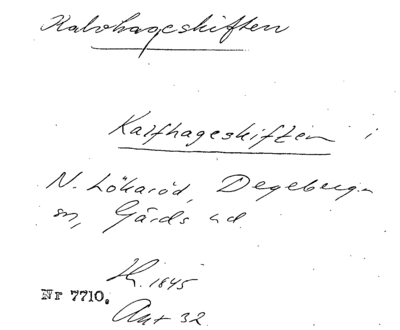 Kalvhageskiften
Kalfhageskiften i
N. Lökaröd, Degeberga
sn, Gärds hd
Sk. 1845
Akt 32
Nr 7710.